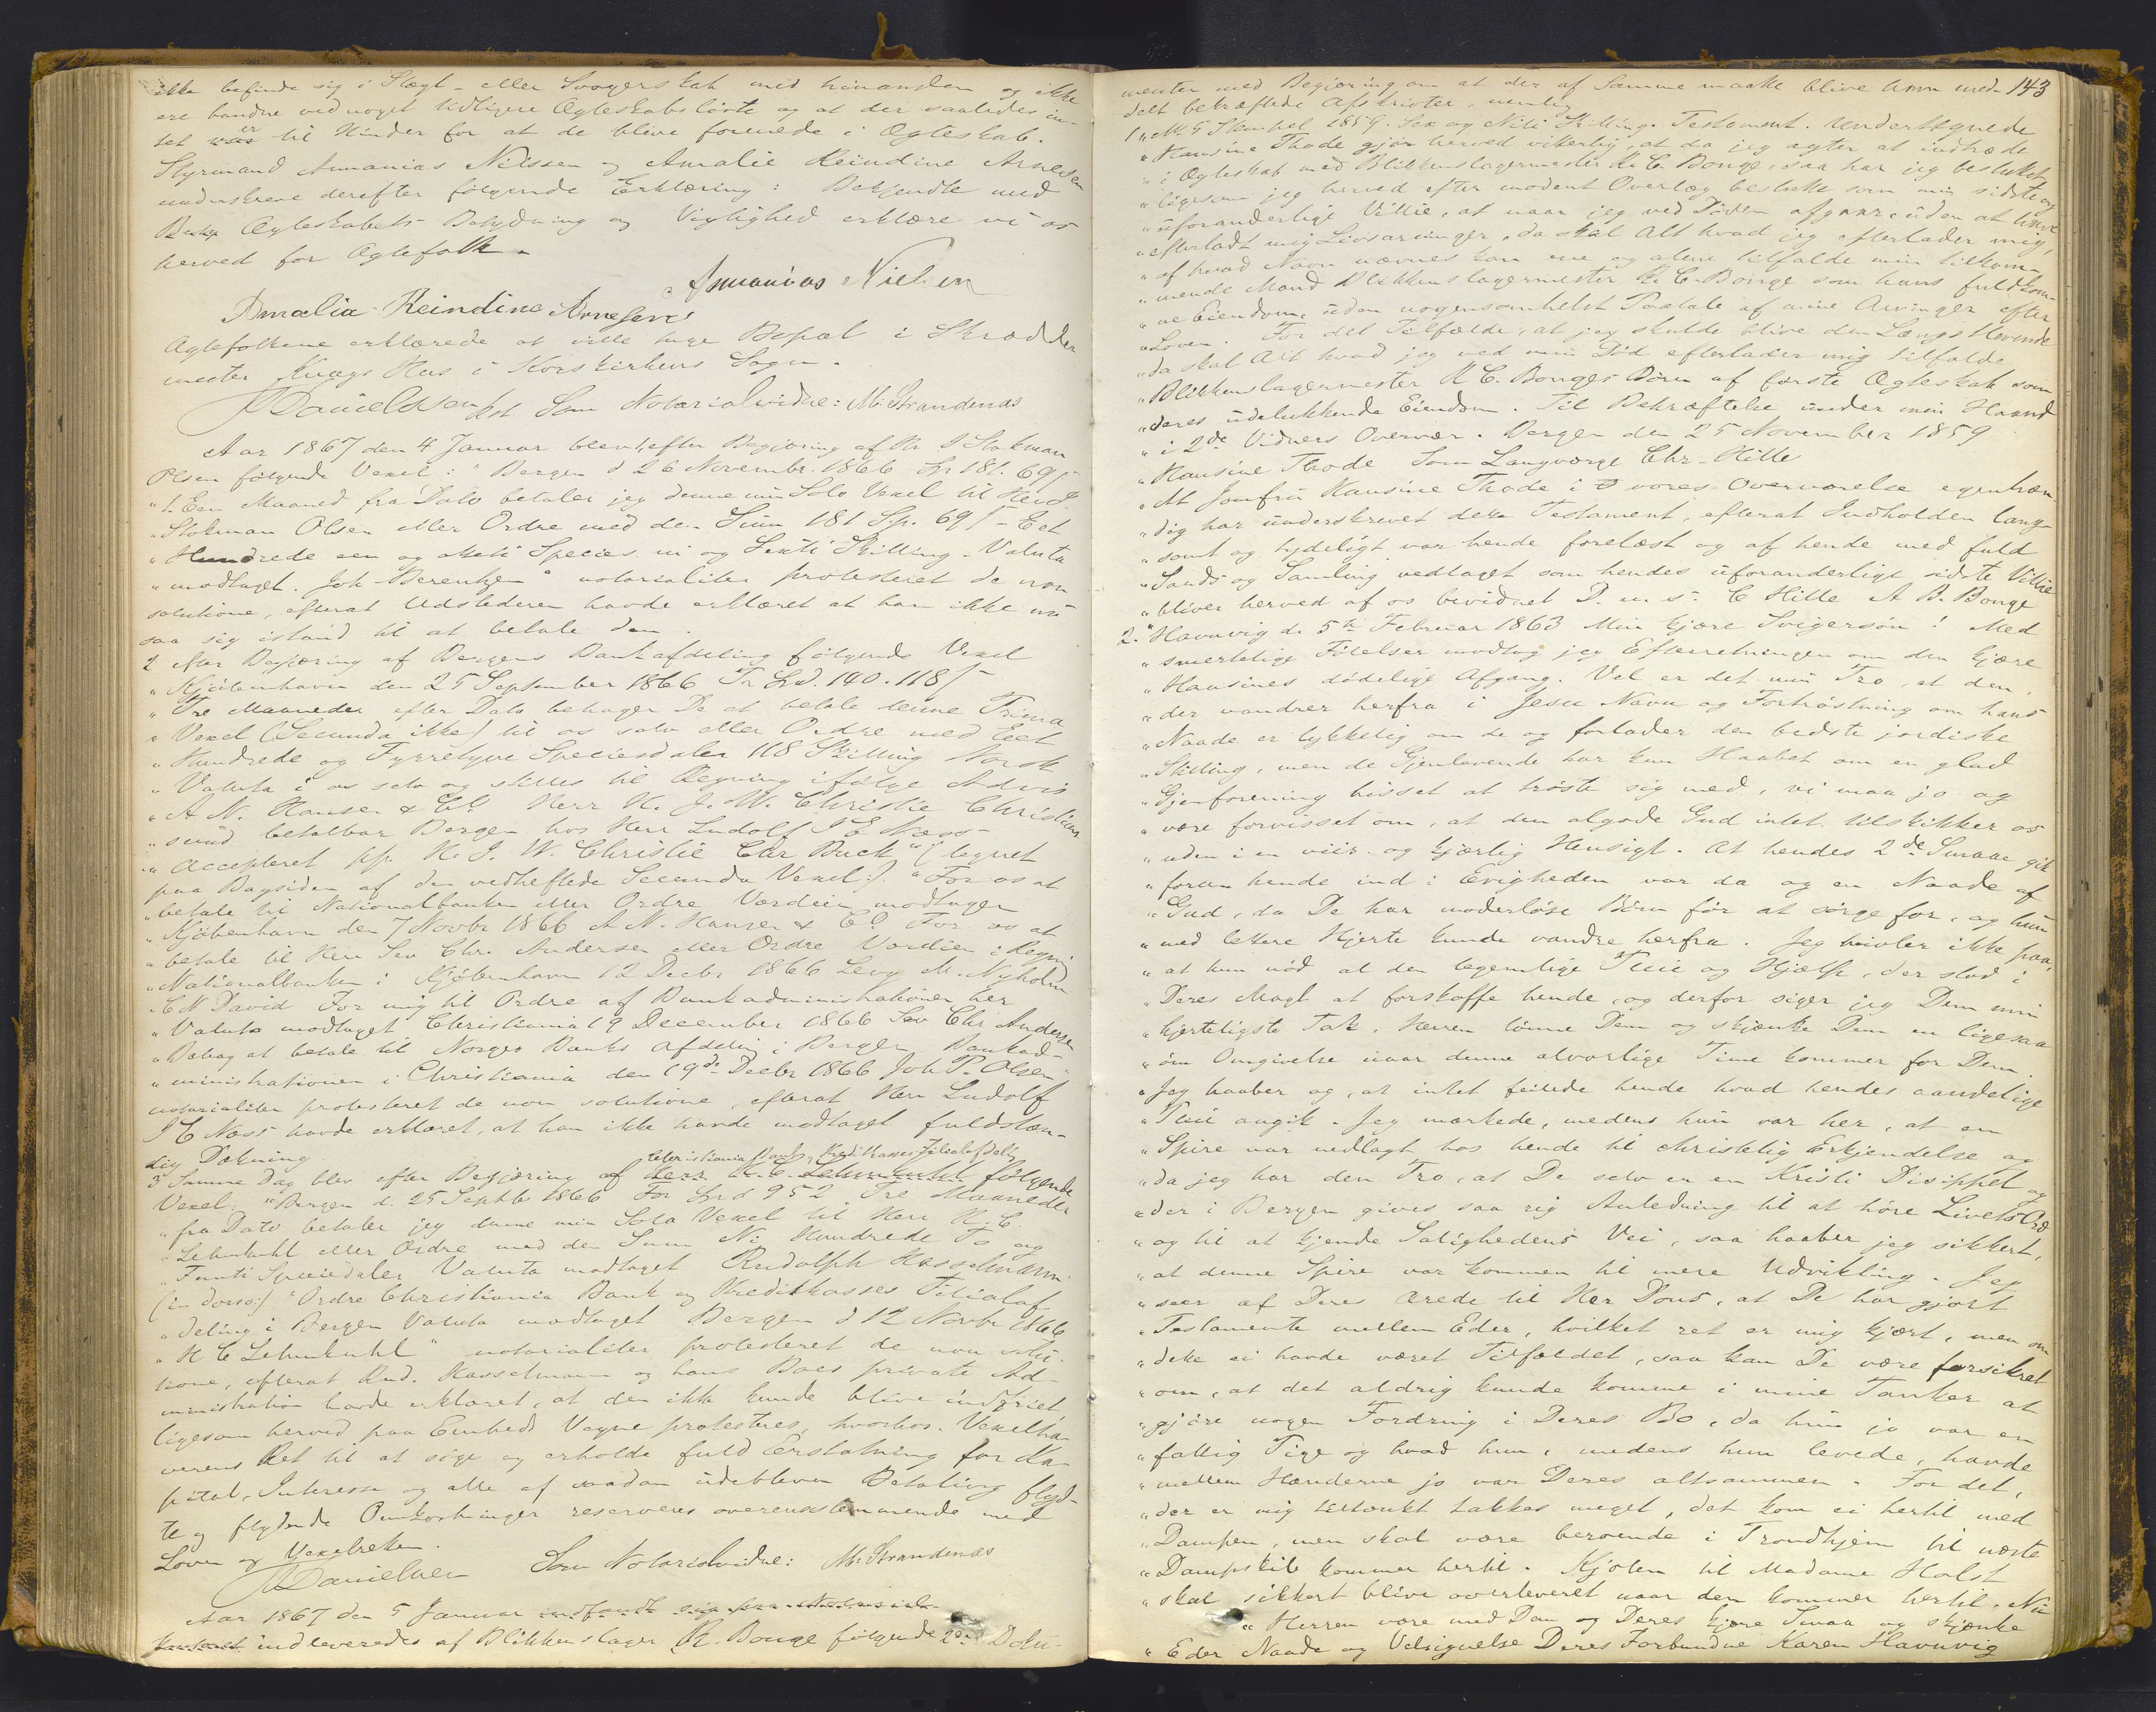 ikke befinde sig i Slægt- eller Svogerskab med hinanden og ikke
ere bundne ved noget tidligere Ægteskabsløfte og at der saaledes in-
tet er til Hinder for at de blive forenede i Ægteskab.
Styrmand Annanias Nilssen og Amalie Reindine Arnesen
underskreve derefter følgende Erklæring: Bekjendte med
Ægteskabets Betydning og Vigtighed erklære vi os
herved for Ægtefolk.
Annanias Nielsen
Amalia Reindine Arnesen
Ægtefolkene erklærede at ville tage Bopæl i Skrædder
mester Krags Hus i Korskirkens Sogn.
JDanielssen kst Som Notarialvidne: M. Strandenæs
Aar 1867 den 4 Januar blev 1, efter Begjæring af Hr J Stokman
Olsen følgende Vexel: "Bergen d 26 Novembr. 1866 for 181. 69ß
"1. Een Maaned fra Dato betaler jeg denne min Sola Vexel til Herr J.
"Stokman Olsen eller Ordre med den Sum 181 Sp. 69ß - Eet
"Hundrede een og otteti Species ni og Sexti Skilling. Valuta
"modtaget. Joh Berentzen" notarialiter protesteret de non
solutione, efterat Udstederen havde erklæret at han ikke nu
saa sig istand til at betale den.
2 efter Begjæring af Bergens Bankafdeling følgende Vexel
"Kjøbenhavn den 25 September 1866 Fr Spd. 140. 118ß
"Tre Maaneder efter Dato behager De at betale denne Prima
"Vexel (Secunda ikke) til os selv eller Ordre med Eet
"Hundrede og Fyrretyve Speciesdaler 118 Skilling Norsk
"Valuta i os selv og stilles til Regning ifølge Advis
"A. N. Hansen & Co Herr H. J. W. Christie Christian
"sund betalbar Bergen hos Herr Ludolf J C Næss-
"Accepteret pp. H. J. W. Christie Chr Buck" (tegnet
paa Bagsiden af den vedheftede Secunda Vexel:) "For os at
"betale til Nationalbanken eller Ordre Værdien modtagen
"Kjøbenhavn den 7 Novbr 1866 A. N. Hansen & Co. For os at
"betale til Herr Sev Chr. Andersen eller Ordre Værdien i Regni
"Nationalbanken i Kjøbenhavn 12 Decbr 1866 Levy M. Nyholm
"C N David For mig til Ordre af Bankadministrationen her
"Valuta modtaget Christiania 19 December 1866 Sev Chr Andersen
"Behag at betale til Norges Banks Afdeling i Bergen Bankad-
"ministrationen i Christiania den 19de Decbr 1866 Joh P. Olsen"
notarialiter protesteret de non solutione, efterat Herr Ludolf
J C Næss havde erklæret, at han ikke havde modtaget fuldstæn-
dig Dækning.
Christiania Bank og Kreditkasses Filialafdeling
3 Samme Dag blev efter Begjæring af Herr H. C. Lehmkuhl følgende
Vexel: "Bergen d. 25 Septb 1866 For Spd 952 Tre Maaneder
"fra Dato betaler jeg denne min Sola Vexel til Herr H. C.
"Lehmkuhl eller Ordre med den Sum Ni Hundrede To og
"Femti Speciedaler Valuta modtaget Rudolph Hasselmann
(in dorso:) "Ordre Christiania Bank og Kreditkasses Filialaf
"deling i Bergen Valuta modtaget Bergen d 12 Novbr 1866
"H C Lehmkuhl" notarialiter protesteret de non solu-
tione, efterat Rud. Hasselmann og hans Boes private Ad-
ministration havde erklæret, at den ikke kunde blive indfriet
ligesom herved paa Embeds Vegne protesteres, hvorhos Vexelha-
verens Ret til at søge og erholde fuld Erstatning for Ka-
pital, Interesse og alle af saadan udebleven Betaling flyd-
te og flydende Omkostninger reserveres overensstemmende med
Loven og Vexelretten.
JDanielssen Som Notarialvidne: M. Strandenæs
Aar 1867 den 5 Januar indfandt sig paa Notarial
indleveredes af Blikkenslager R. Bonge følgende 2de Doku-
143
menter med Begjæring om at der af Samme maatte blive ham med
delt bekræftede Afskrivter, nemlig
1, "No 5 Stempel 1859. Sex og Niti Skilling. Testament. Undertegnede
"Hansine Thode gjør herved vitterlig, at da jeg agter at indtræde
"i Ægteskab med Blikkenslagermester R. C. Bonge, saa har jeg besluttet
"ligesom jeg herved efter modent Overlæg beslutte som min sidste og
"uforanderlige Villie, at naar jeg ved Døden afgaar, uden at have
"efterladt mig Livsarvinger, da skal Alt hvad jeg efterlader mig,
"af hvad Navn nævnes kan ene og alene tilfalde min tilkom-
"mende Mand Blikkenslagermester R. C. Bonge som hans fuldkom-
"ne Eiendom, uden nogensomhelst Paatale af mine Arvinger efter
"Loven. For det Tilfælde, at jeg skulde blive den Længstlevende
"da skal Alt hvad jeg ved min Død efterlader mig tilfalde
"Blikkenslagermester R C. Bonges Børn af første Ægteskab som
"deres udelukkende Eiendom. Til Bekræftelse under min Haand
"i 2de Vidners Overvær. Bergen den 25 November 1859
"Hansine Thode Som Laugværge Chr. Hille
"At Jomfru Hansine Thode i vores Overværelse egenhæn-
"dig har underskrevet dette Testament, efterat Indholden lang-
"somt og tydeligt var hende forelæst og af hende med fuld
"Sands og Samling vedtaget som hendes uforanderligt sidste Villie
"bliver herved af os bevidnet D. u. s. C Hille A B. Bonge
2. "Havnvig de 5te Februar 1863 Min kjære Svigersøn! Med
"smertelige Følelser modtog jeg Efterretningen om den kjære
"Hansines dødelige Afgang. Vel er det min Tro, at den,
"der vandrer herfra i Jesu Navn og Fortrøstning om hans
"Naade er lykkelig om de og forlader den bedste jordiske
"Stilling, men de Gjenlevende har kun Haabet om en glad
"Gjenforening hisset at trøste sig med, vi maa jo og
"være forvisset om, at den algode Gud intet tilskikker os
"uden i en viis og kjærlig Hensigt. At hendes 2de Smaae gik
"foran hende ind i Evigheden var da og en Naade af
"Gud, da De har moderløse Børn før at sørge for, og hun
"med lettere Hjerte kunde vandre herfra. Jeg tvivler ikke paa,
"at hun nød al den legemlige Pleie og Hjælp, der stod i
"Deres Magt at forskaffe hende, og derfor siger jeg Dem min
"hjerteligste Tak, Herren lønne Dem og skjænke Dem en ligesaa
"øm Omgivelse naar denne alvorlige Time kommer for Dem.
"Jeg haaber og, at intet feilede hende hvad hendes aandelige
"Pleie angik. Jeg mærkede, medens hun var her, at en
"Spire var nedlagt hos hende til christelig Erkjendelse og
"da jeg har den Tro, at De selv er en Kristi Discippel og
"der i Bergen gives saa rig Anledning til at høre Livets Ord
"og til at kjende Salighedens Vei, saa haaber jeg sikkert,
"at denne Spire var kommen til mere Udvikling. Jeg
"seer af Deres Ærede til Herr Dons, at De har gjort
"Testamente mellem Eder, hvilket ret er mig kjært, men om
"dette ei havde været Tilfældet, saa kan De være forsikret
"om, at det aldrig kunde komme i mine Tanker at
"gjøre nogen Fordring i Deres Bo, da hun jo var en
"fattig Pige og hvad hun, medens hun levede, havde
"mellem Hænderne jo var Deres altsammen. For det,
"der er mig tiltænkt takkes meget, det kom ei hertil med
"Dampen, men skal være beroende i Trondhjem til næste
"Dampskib kommer hertil. Kjolen til Madame Holst
"skal sikkert blive overleveret naar den kommer hertil. Nu
"Herren være med Dem og Deres kjære Smaa og skjænke
"Eder Naade og Velsignelse Deres Forbundne Karen Havnvig